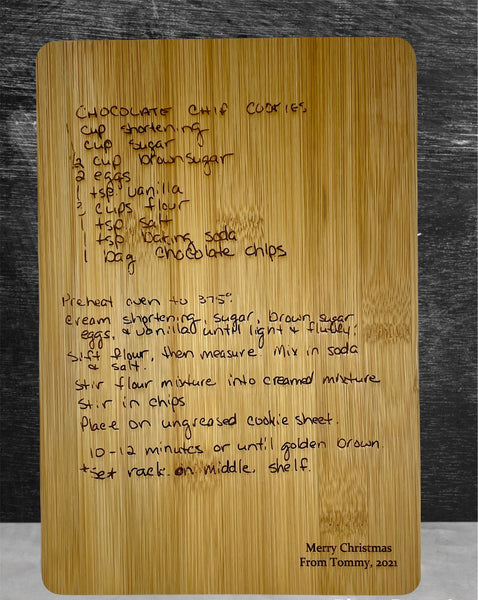 CHOCOLATE CHIP COOKIES
1 cup shortening
cup sugar
1/2 cup brown sugar
2 eggs
1 tsp vanilla
3 cups flour
1 tsp salt
1 tsp baking soda
1 bag chocolate chips
Preheat oven to 375°.
Cream shortening, sugar, brown sugar
eggs, & vanilla until light & fluffy.
Sift flour, then measure. Mix in soda
& salt.
Stir flour mixture into creamed mixture
Stir in chips
Place on ungreased cookie sheet.
10-12 minutes or until golden brown
*set rack on middle shelf.
Merry Christmas
From Tommy, 2021